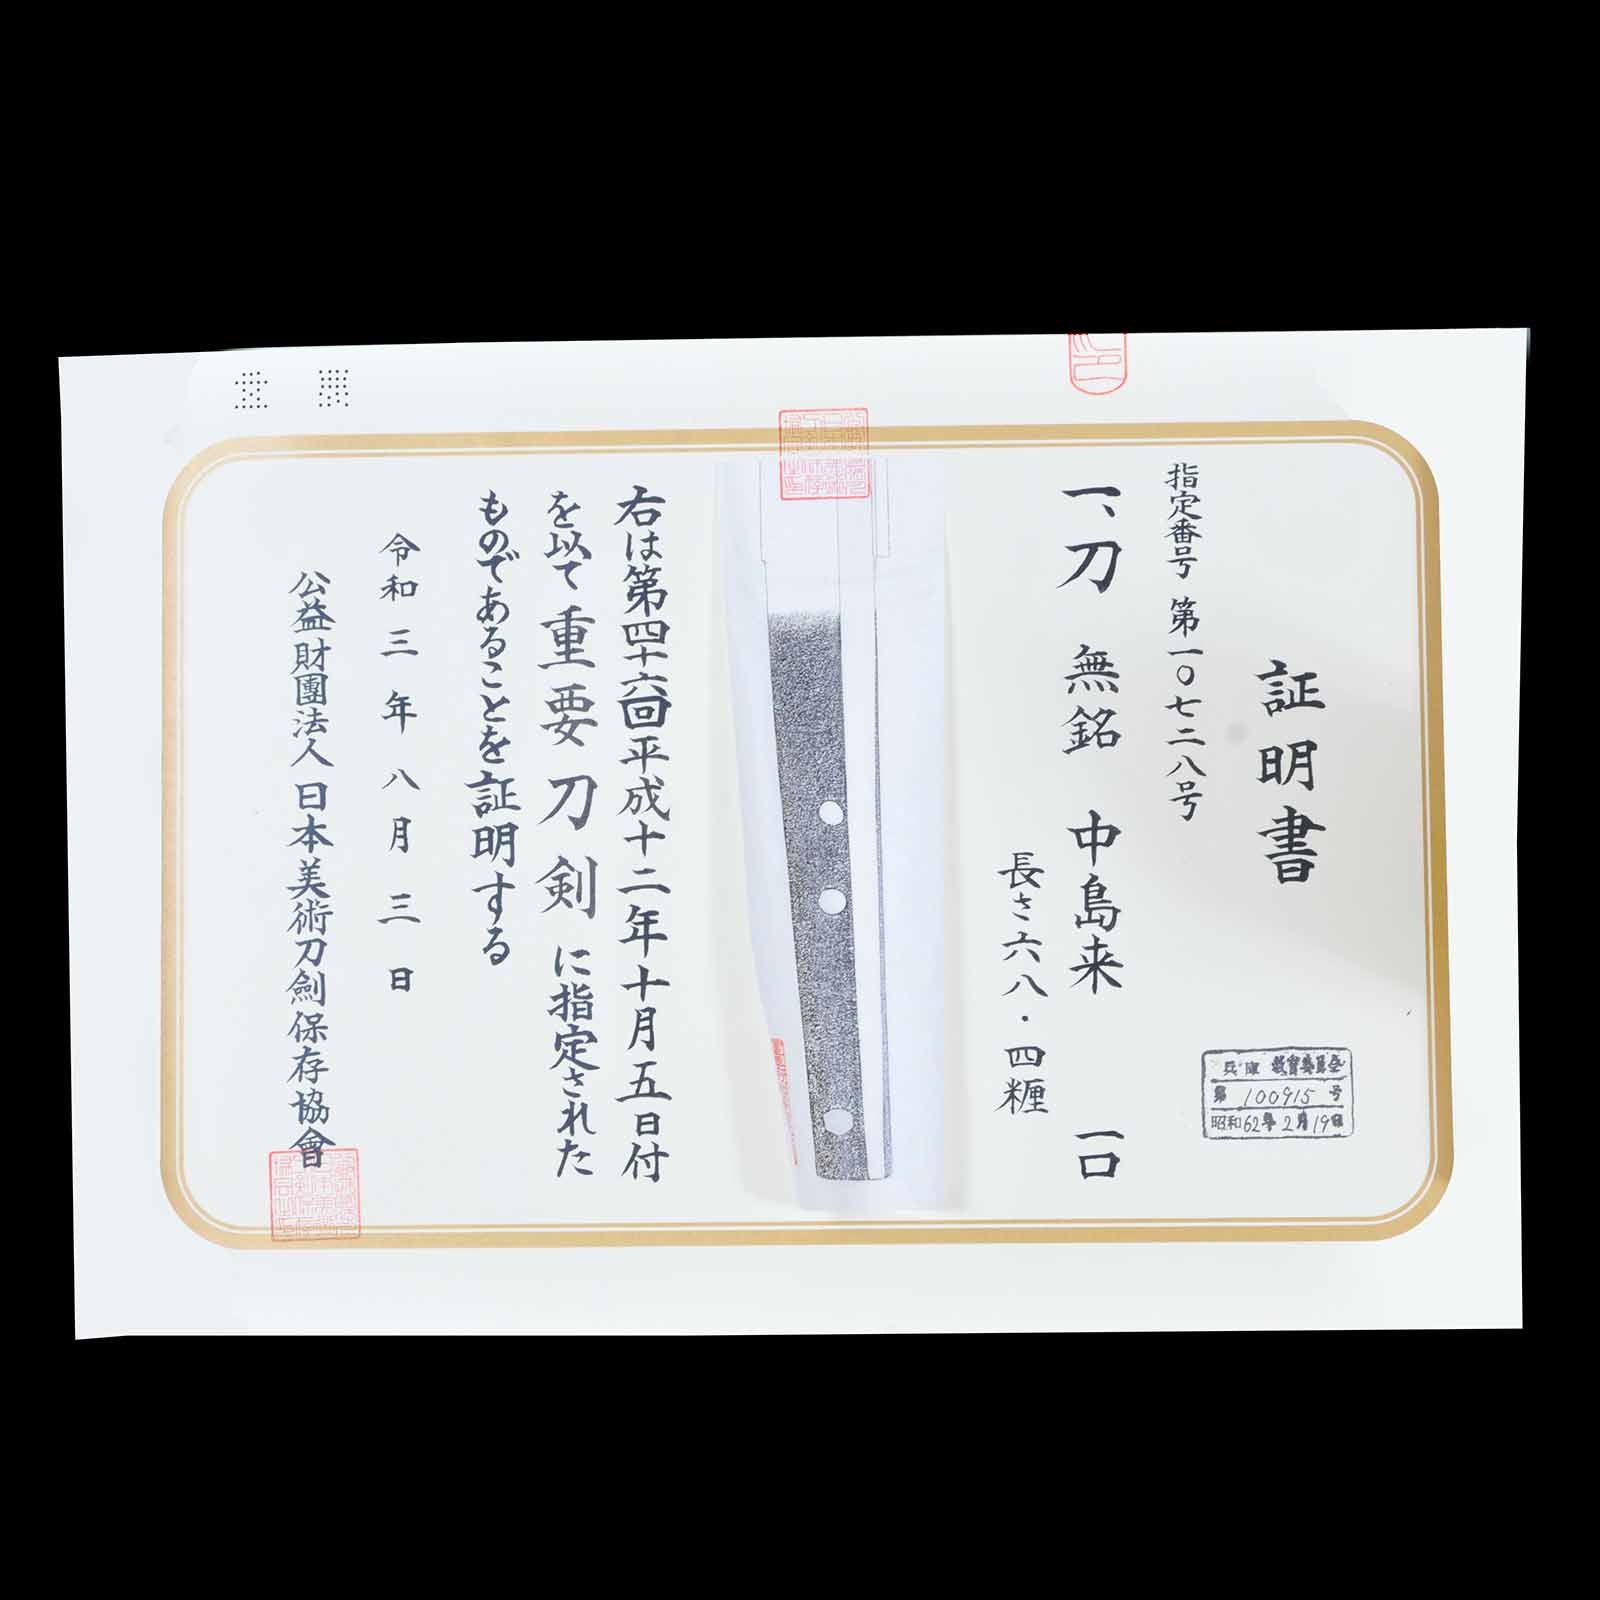 証明書
指定番号 第一〇七二八号
一、刀 無銘 中島来 一口
長さ六八・四糎
右は第四十六回平成十二年十月五日付
を以て重要刀剣に指定された
ものであることを証明する
令和三年八月三日
公益財團法人日本美術刀劍保存協會
兵庫 教育委員会
第 100915 号
昭和62年2月19日